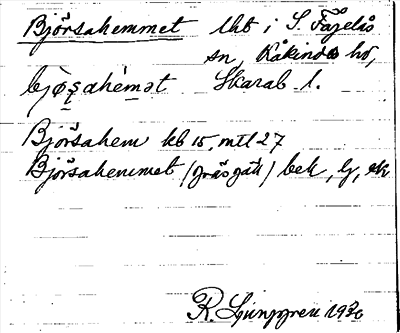 Björsahemmet lht i S. Fågelås
sn, Kåkinds hd,
bjøʂahèmət Skarab l.
Björsahem kb 15, mtl 27
Björsahemmet (gräsgäll) bek, lj, sk
R. Ljunggren 1930